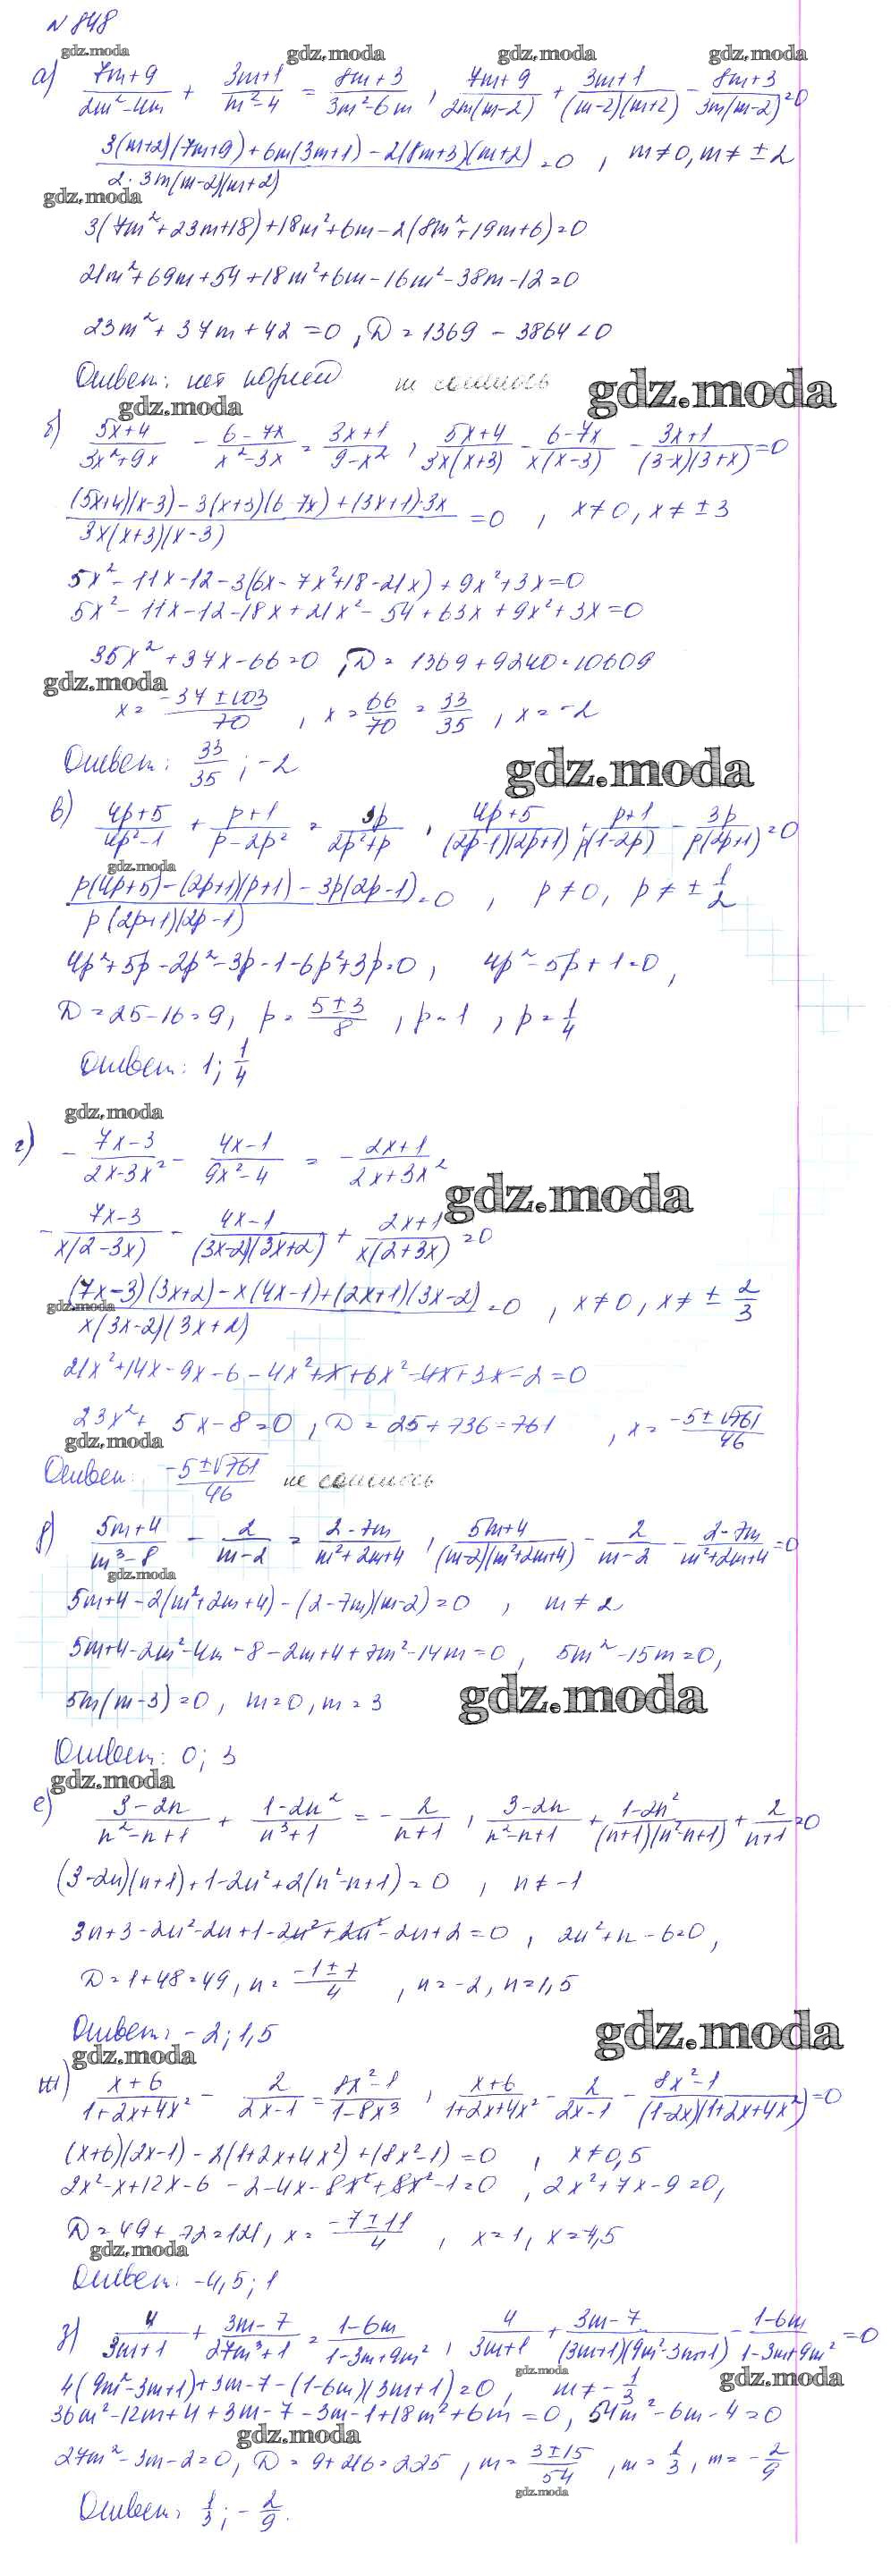 N 848
gdz.moda gdz.moda gdz.moda gdz.moda
а) (7m+9)/(2m²-4m) + (3m+1)/(m²-4) = (8m+3)/(3m²-6m), (7m+9)/(2m(m-2)) + (3m+1)/((m-2)(m+2)) - (8m+3)/(3m(m-2)) = 0
(3(m+2)(7m+9)+6m(3m+1)-2(8m+3)(m+2))/(2·3m(m-2)(m+2)) = 0, m≠0, m≠±2
gdz.moda
3(7m²+23m+18)+18m²+6m-2(8m²+19m+6)=0
21m²+69m+54+18m²+6m-16m²-38m-12=0
23m²+37m+42=0, D=1369-3864<0
Ответ: нет корней не сошлось gdz.moda
gdz.moda
б) (5x+4)/(3x²+9x) - (6-7x)/(x²-3x) = (3x+1)/(9-x²), (5x+4)/(3x(x+3)) - (6-7x)/(x(x-3)) - (3x+1)/((3-x)(3+x)) = 0
((5x+4)(x-3)-3(x+3)(6-7x)+(3x+1)·3x)/(3x(x+3)(x-3)) = 0, x≠0, x≠±3
5x²-11x-12-3(6x-7x²+18-21x)+9x²+3x=0
5x²-11x-12-18x+21x²-54+63x+9x²+3x=0
35x²+37x-66=0, D=1369+9240=10609
gdz.moda
x=(-37±103)/70, x=66/70=33/35, x=-2
Ответ: 33/35; -2 gdz.moda
в) (4p+5)/(4p²-1) + (p+1)/(p-2p²) = 3p/(2p²+p), (4p+5)/((2p-1)(2p+1)) + (p+1)/(p(1-2p)) - 3p/(p(2p+1)) = 0
gdz.moda
(p(4p+5)-(2p+1)(p+1)-3p(2p-1))/(p(2p+1)(2p-1)) = 0, p≠0, p≠±1/2
4p²+5p-2p²-3p-1-6p²+3p=0, 4p²-5p+1=0,
D=25-16=9, p=(5±3)/8, p=1, p=1/4
Ответ: 1; 1/4
gdz.moda
г) -(7x-3)/(2x-3x²) - (4x-1)/(9x²-4) = -(2x+1)/(2x+3x²)
gdz.moda
-(7x-3)/(x(2-3x)) - (4x-1)/((3x-2)(3x+2)) + (2x+1)/(x(2+3x)) = 0
((7x-3)(3x+2)-x(4x-1)+(2x+1)(3x-2))/(x(3x-2)(3x+2)) = 0, x≠0, x≠±2/3
gdz.moda
21x²+14x-9x-6-4x²+x+6x²-4x+3x-2=0
23x²+5x-8=0, D=25+736=761, x=(-5±√761)/46
gdz.moda
Ответ: (-5±√761)/46 не сошлось
д) (5m+4)/(m³-8) - 2/(m-2) = (2-7m)/(m²+2m+4), (5m+4)/((m-2)(m²+2m+4)) - 2/(m-2) - (2-7m)/(m²+2m+4) = 0
gdz.moda
5m+4-2(m²+2m+4)-(2-7m)(m-2)=0, m≠2
5m+4-2m²-4m-8-2m+4+7m²-14m=0, 5m²-15m=0,
5m(m-3)=0, m=0, m=3 gdz.moda
Ответ: 0; 3
gdz.moda
е) (3-2n)/(n²-n+1) + (1-2n²)/(n³+1) = -2/(n+1), (3-2n)/(n²-n+1) + (1-2n²)/((n+1)(n²-n+1)) + 2/(n+1) = 0
(3-2n)(n+1)+1-2n²+2(n²-n+1)=0, n≠-1
3n+3-2n²-2n+1-2n²+2n²-2n+2=0, 2n²+n-6=0,
D=1+48=49, n=(-1±7)/4, n=-2, n=1,5
Ответ: -2; 1,5 gdz.moda
gdz.moda
ж) (x+6)/(1+2x+4x²) - 2/(2x-1) = (8x²-1)/(1-8x³), (x+6)/(1+2x+4x²) - 2/(2x-1) - (8x²-1)/((1-2x)(1+2x+4x²)) = 0
(x+6)(2x-1)-2(1+2x+4x²)+(8x²-1)=0, x≠0,5
2x²-x+12x-6-2-4x-8x²+8x²-1=0, 2x²+7x-9=0,
D=49+72=121, x=(-7±11)/4, x=1, x=4,5
gdz.moda
Ответ: -4,5; 1
з) 4/(3m+1) + (3m-7)/(27m³+1) = (1-6m)/(1-3m+9m²), 4/(3m+1) + (3m-7)/((3m+1)(9m²-3m+1)) - (1-6m)/(1-3m+9m²) = 0
gdz.moda gdz.moda
4(9m²-3m+1)+3m-7-(1-6m)(3m+1)=0, m≠-1/3
36m²-12m+4+3m-7-3m-1+18m²+6m=0, 54m²-6m-4=0
gdz.moda
27m²-3m-2=0, D=9+216=225, m=(3±15)/54, m=1/3, m=-2/9
gdz.moda
Ответ: 1/3; -2/9.